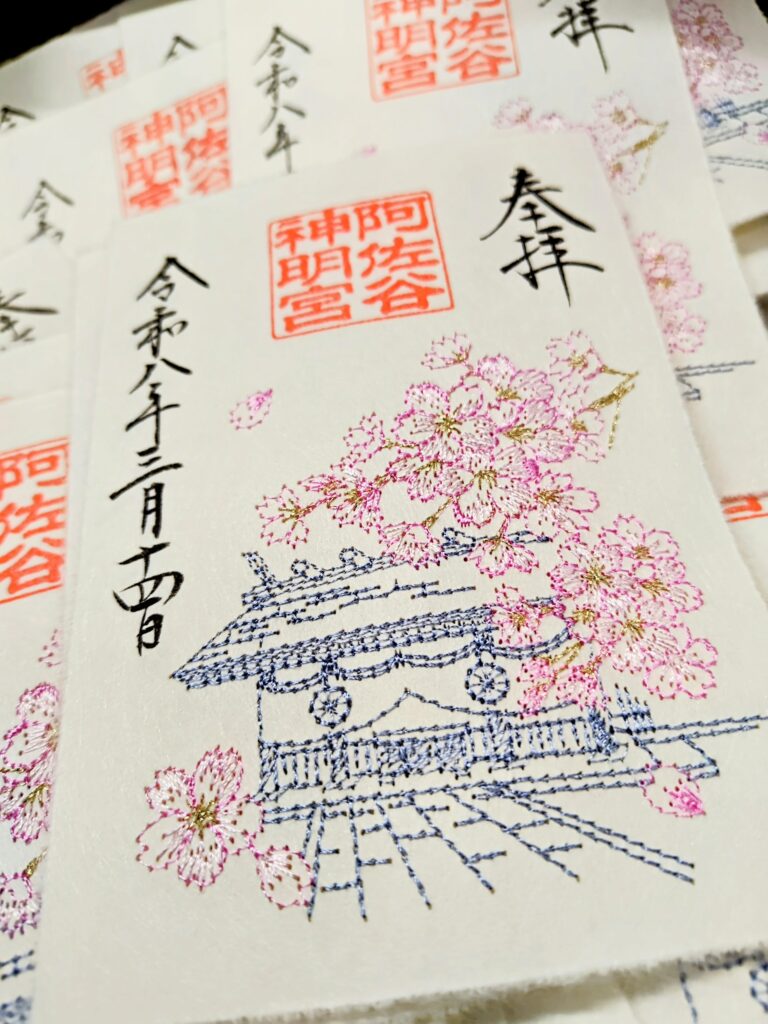 奉拝
阿佐谷
神明宮
令和八年三月十四日
奉拝
阿佐谷
神明宮
令和八年
阿佐谷
神明宮
令和
阿佐谷
神